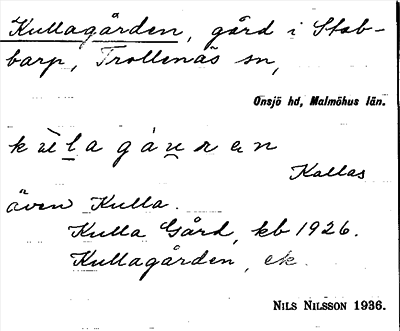 Kullagården, gård i Stab-
barp, Trollenäs sn,
Onsjö hd, Malmöhus län.
Kallas
även Kulla.
Kulla Gård, kb 1926.
Kullagården, ek
NILS NILSSON 1936.